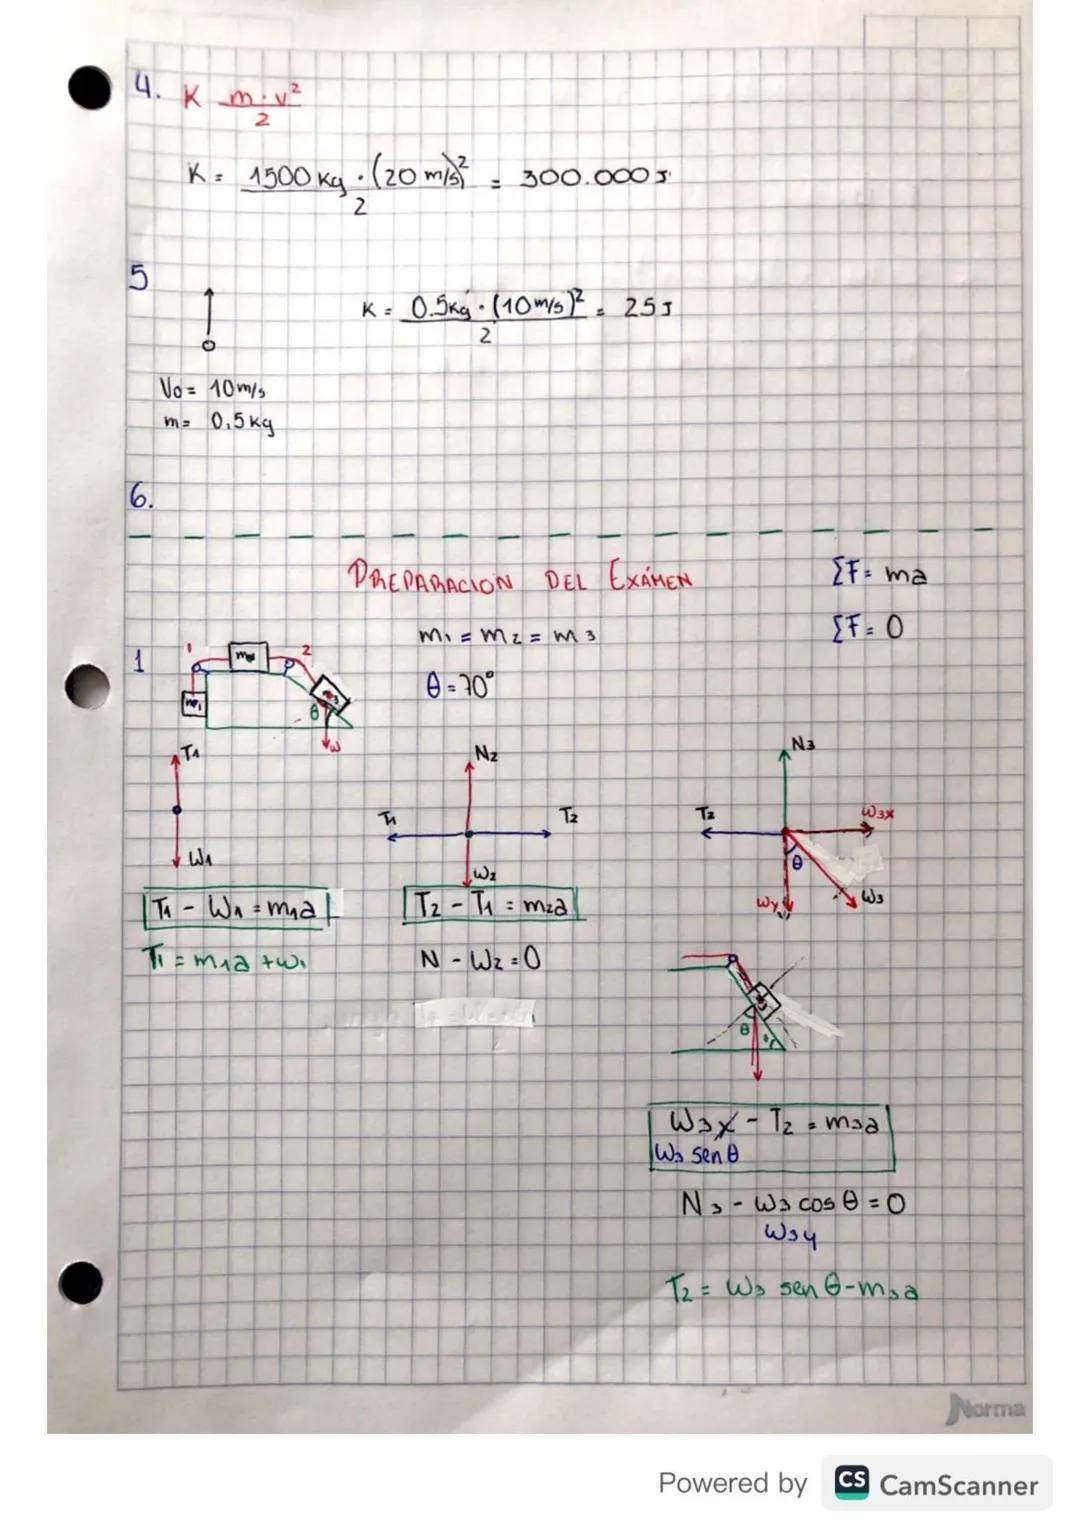 4. K m·v²
2
K = 1500 Kg · (20 m/s)² = 300.000 J
2
5
K = 0.5Kg · (10 m/s)² = 25 J
2
Vo = 10 m/s
m = 0,5 kg
6.
PREPARACION DEL EXÁMEN
ΣF = ma
m1 = m2 = m3
ΣF = 0
1
1
2
m2
m1
m3
θ
w
θ = 70°
T1
N2
N3
T1
T2
T2
W3x
W1
W2
θ
Wy
W3
T1 - W1 = m1a
T2 - T1 = m2a
T1 = m1a + w1
N - W2 = 0
θ
W3x - T2 = m3a
W3 sen θ
N3 - W3 cos θ = 0
W3y
T2 = W3 sen θ - m3a
Norma
Powered by CS CamScanner